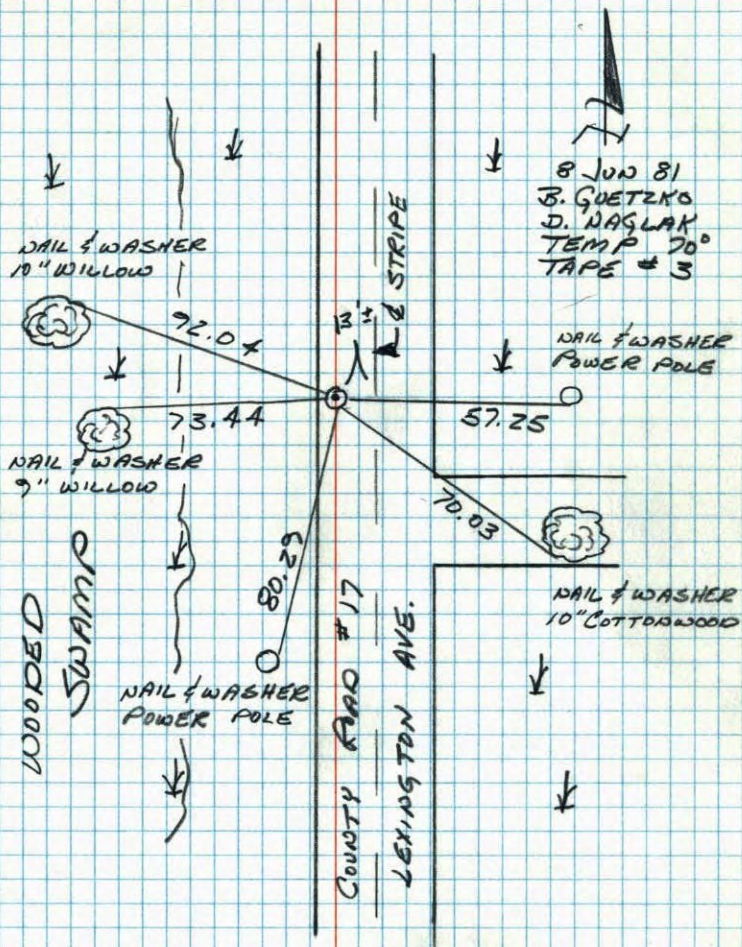 8 JUN 81
B. GUETZKO
D. NAGLAK
TEMP 70°
TAPE # 3
NAIL & WASHER
10" WILLOW
92.04
13'±
℄ STRIPE
NAIL & WASHER
POWER POLE
57.25
73.44
NAIL & WASHER
9" WILLOW
70.03
80.29
NAIL & WASHER
10" COTTONWOOD
WOODED
SWAMP
NAIL & WASHER
POWER POLE
COUNTY ROAD #17
LEXINGTON AVE.